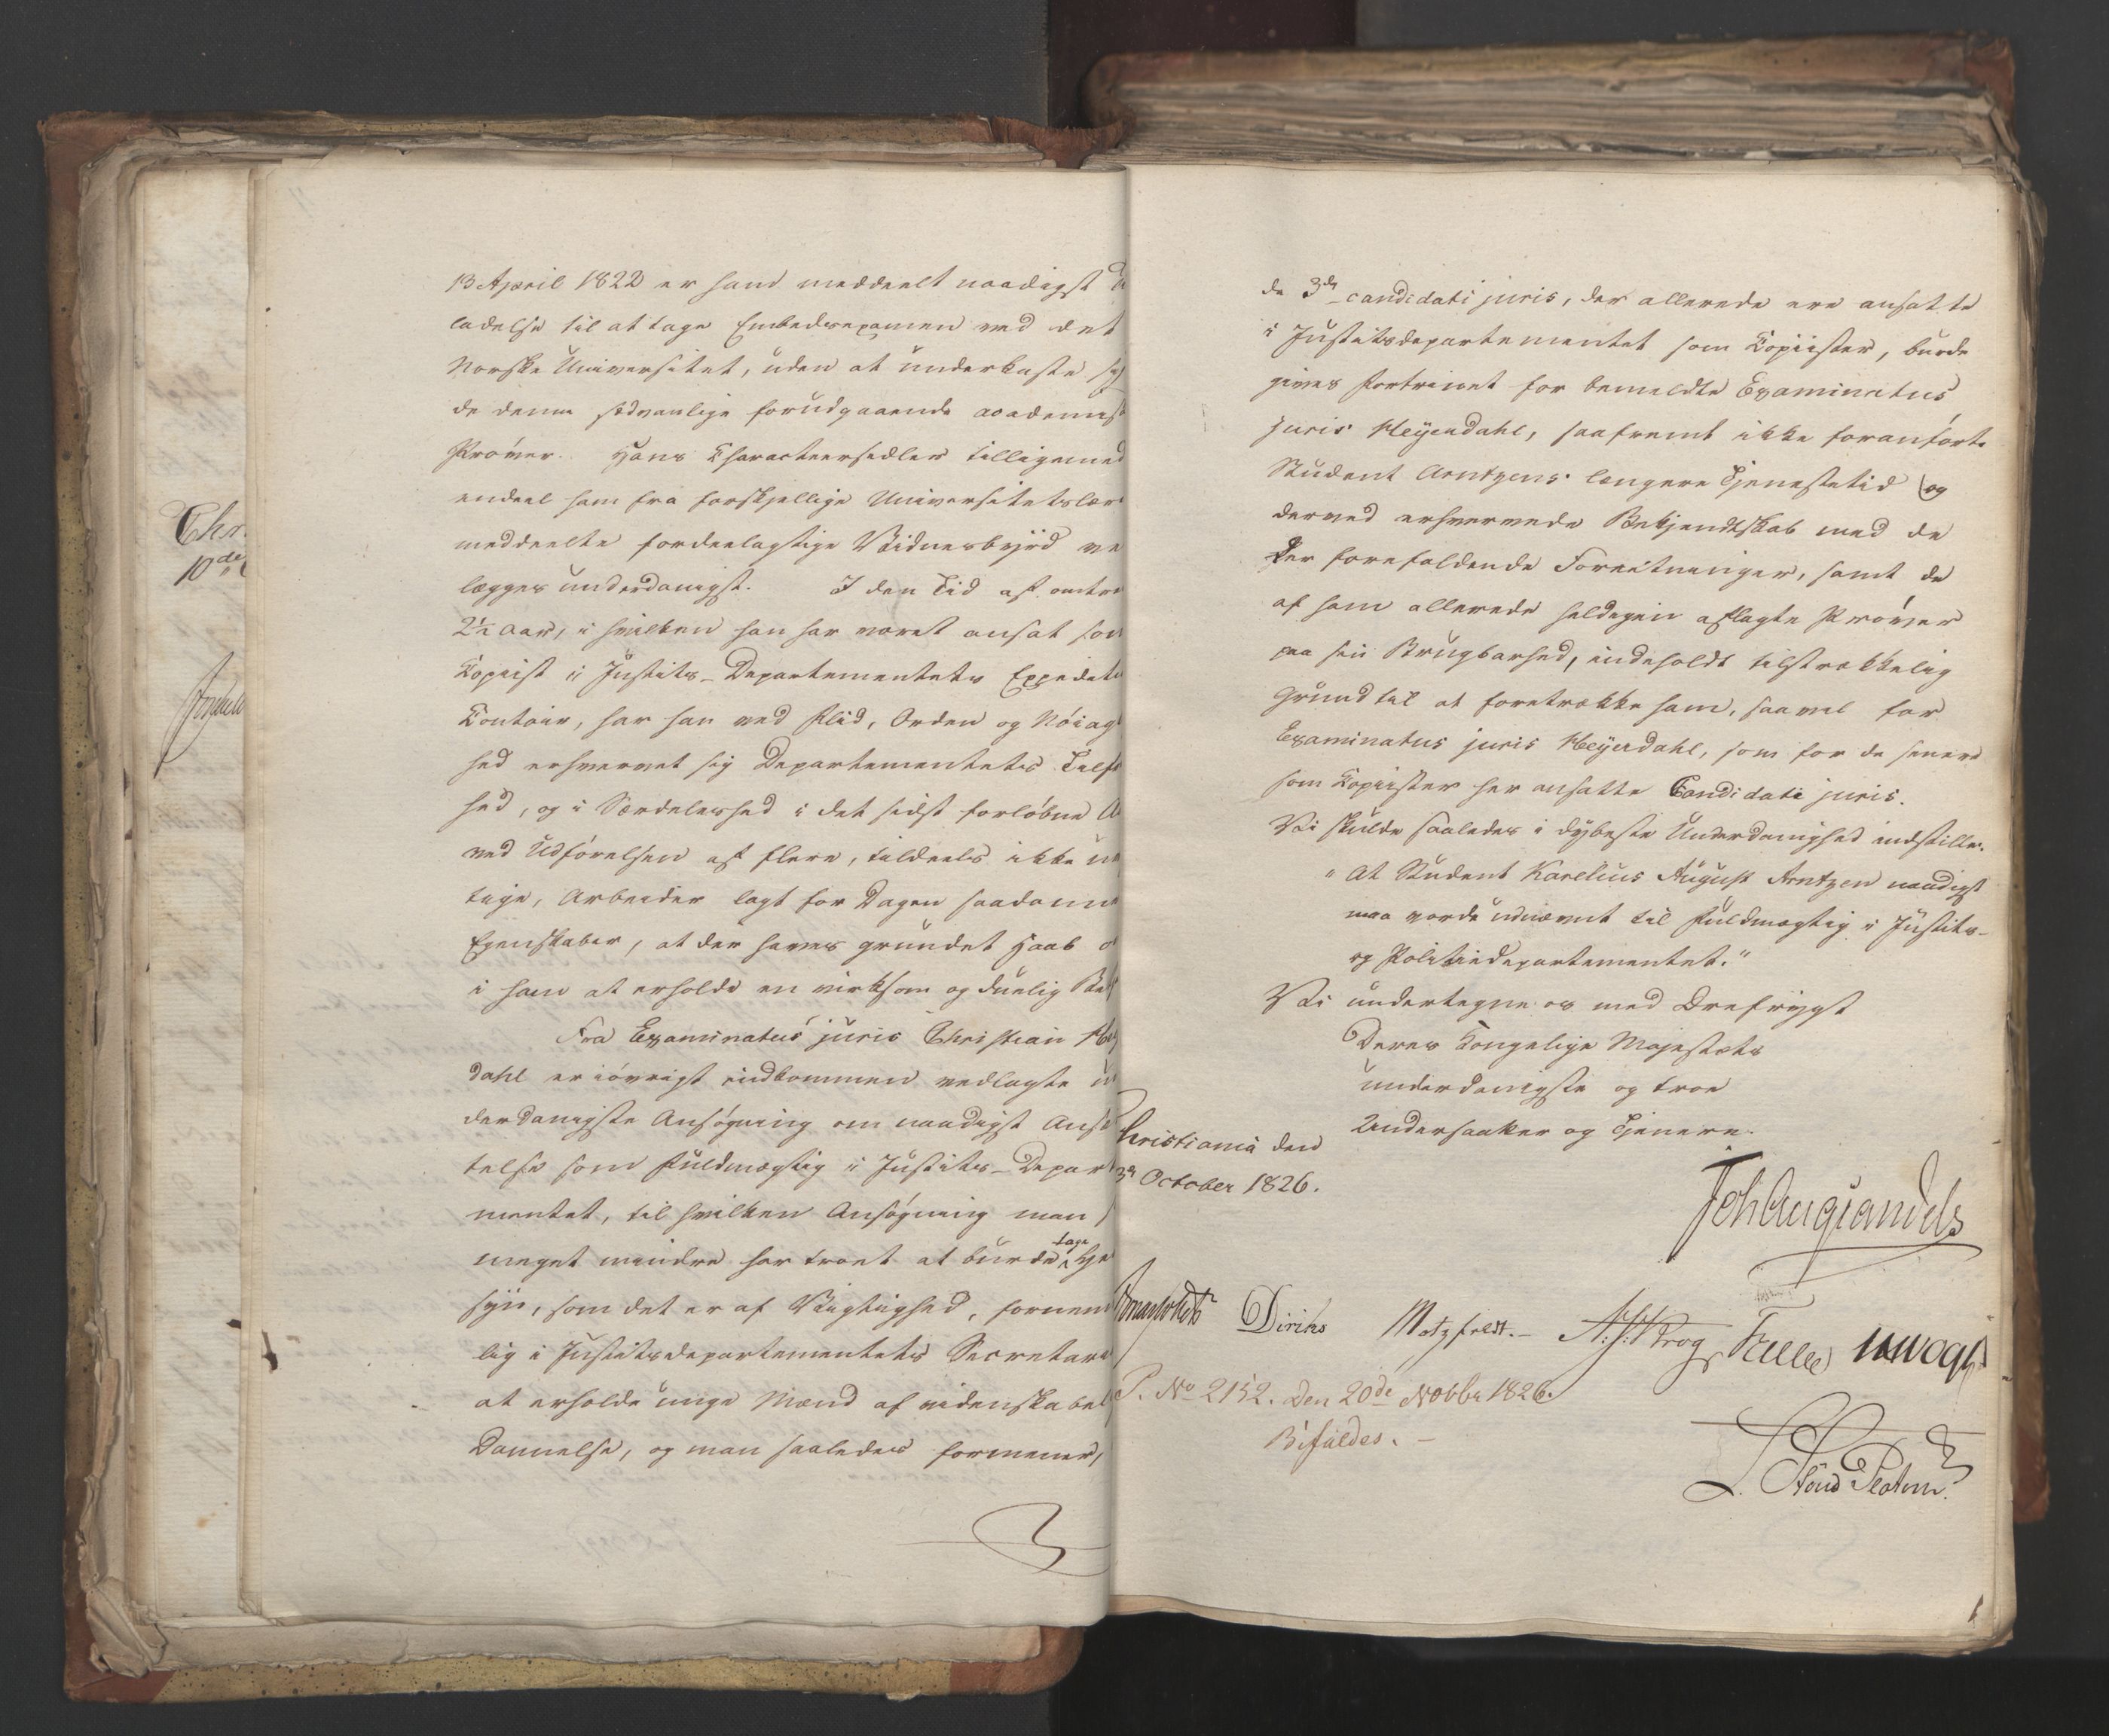 13 April 1822 er ham meddeelt naadigst
ladelse til at tage Embedsexamen ved det
Norske Universitet, uden at underkaste sig
de denne sædvanlige forudgaaende academisk
Prøver. Hans Characteersedler tilligemed
endeel ham fra forskjellige Universitetslær
meddeelte fordeelagtige Vidnesbyrd ve
lægges underdanigst. I den Tid af omtre
2½ Aar, i hvilken han har været ansat som
Copiist i Justits-Departementets Expedit
Contoir, har han ved Flid, Orden og Nøiag
hed erhvervet sig Departementets Tilfr
hed, og i Særdeleshed i det sidst forløbne A
ved Udførelsen af flere, tildeels ikke u
tige, Arbeider lagt for Dagen saadanne
Egenskaber, at der haves grundet Haab o
i ham at erholde en virksom og duelig Be
Fra Examinatus juris Christian Hey
dahl er iøvrigt indkommen vedlagte un
derdanigste Ansøgning om naadigst Ans
telse som Fuldmægtig i Justits-Depart
mentet, til hvilken Ansøgning man
meget mindre har troet at burde tage Hen
syn, som det er af Vigtighed, fornem
lig i Justitsdepartementets Secretari
at erholde unge Mænd af videnskabel
Dannelse, og man saaledes formener,
Chr.
10de
de 3de candidati juris, der allerede ere ansatte
i Justitsdepartementet som Copiister, burde
gives Fortrinet for bemeldte Examinatus
juris Heyerdahl, saafremt ikke foranførte
Student Arntzens længere Tjenestetid og
derved erhvervede Bekjendtskab med de
der forefaldende Forretninger, samt de
af ham allerede heldigen aflagte Prøver
paa sin Brugbarhed, indeholdt tilstrækkelig
Grund til at foretrække ham, saavel for
Examinatus juris Heyerdahl, som for de senere
som Copiister her ansatte Candidati juris.
Vi skulde saaledes i dybeste Underdanighed indstille.
"At Student Karelius August Arntzen naadigst
maa vorde udnævnt til Fuldmægtig i Justits-
og Politiedepartementet."
Vi undertegne os med Ærefrygt
Deres Kongelige Majestæts
underdanigste og troe
Undersaatter og Tjenere.
Christiania den
3de October 1826.
Joh Aug Sandels
Diriks Motzfeldt.- A:J:Krog
P. No 2152. Den 20de Novbr 1826.
Bifaldes. -